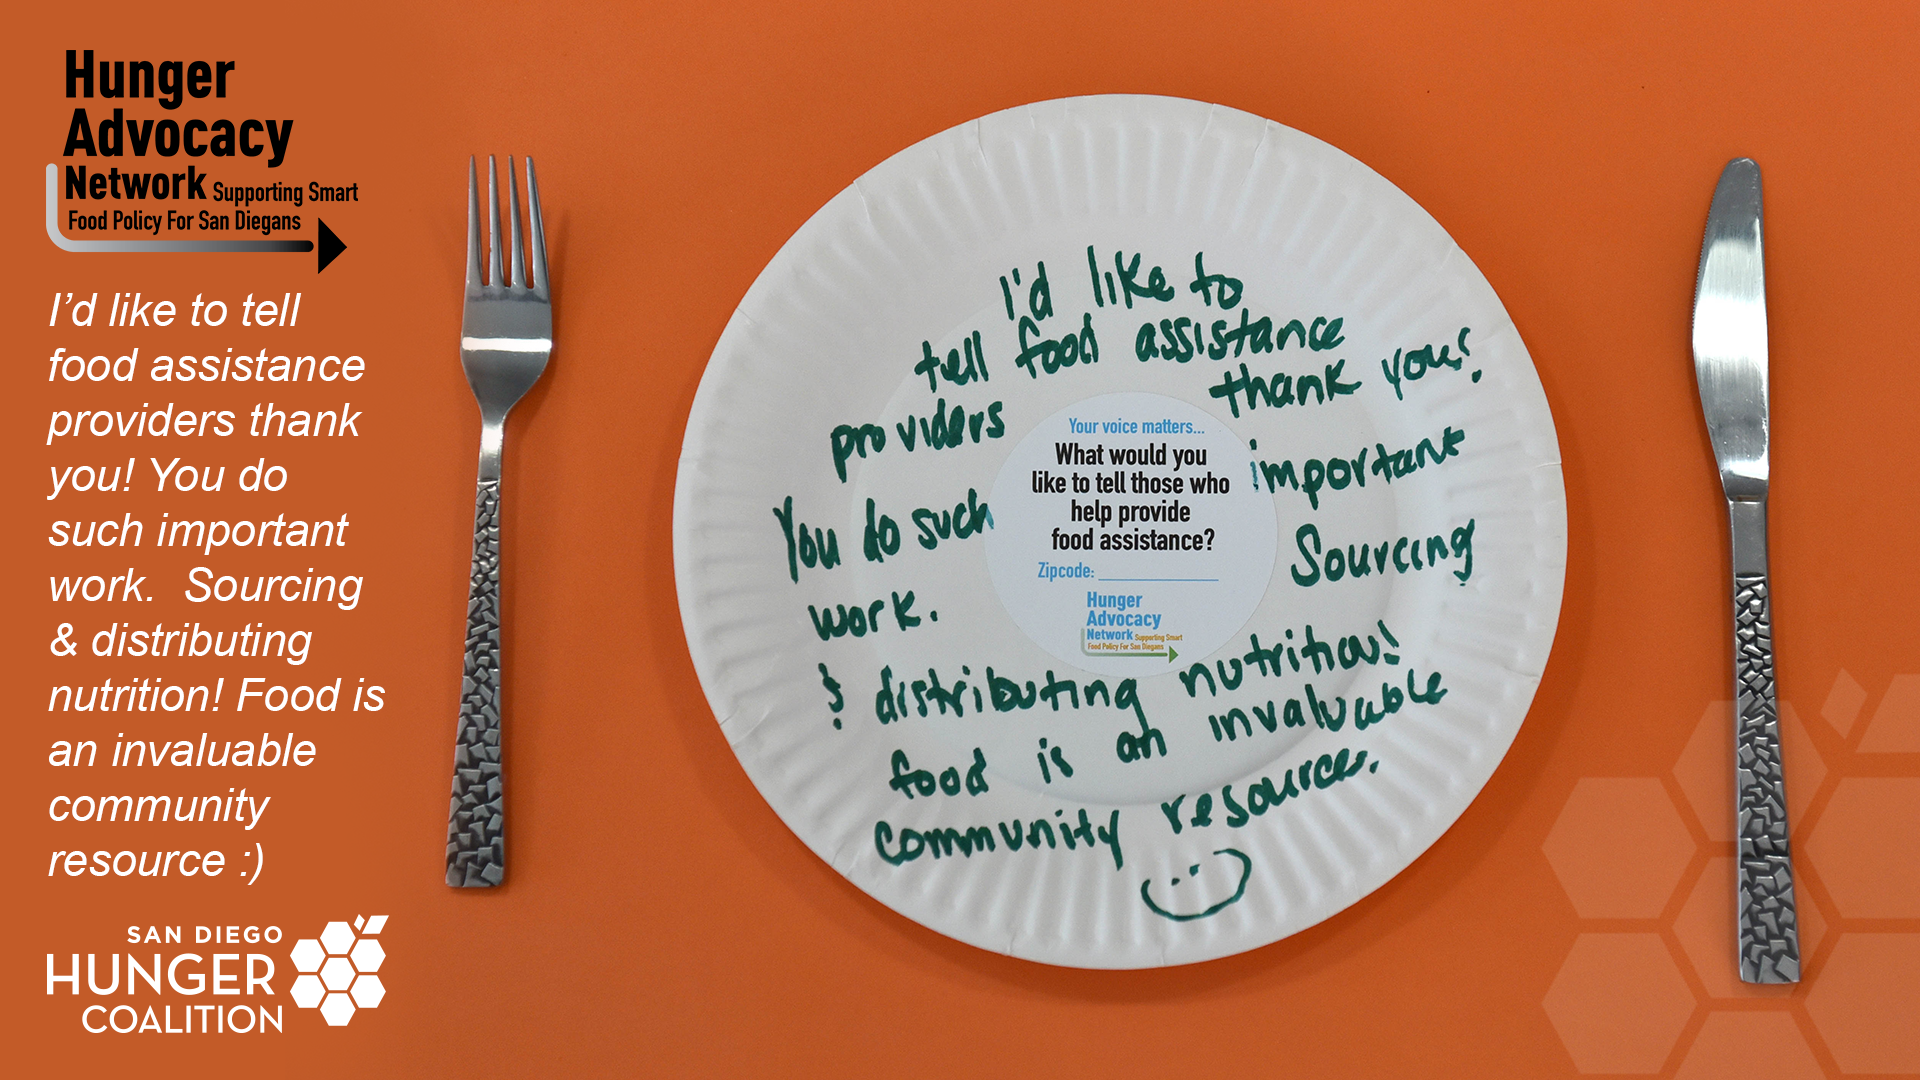 Hunger
Advocacy
Network Supporting Smart
Food Policy For San Diegans
I'd like to tell
food assistance
providers thank
you! You do
such important
work.  Sourcing
& distributing
nutrition! Food is
an invaluable
community
resource :)
SAN DIEGO
HUNGER
COALITION
I'd like to
tell food assistance
providers thank you!
You do such important
work. Sourcing
& distributing nutrition!
food is an invaluable
community resource.
Your voice matters...
What would you
like to tell those who
help provide
food assistance?
Zipcode: ______________
Hunger
Advocacy
Network Supporting Smart
Food Policy For San Diegans